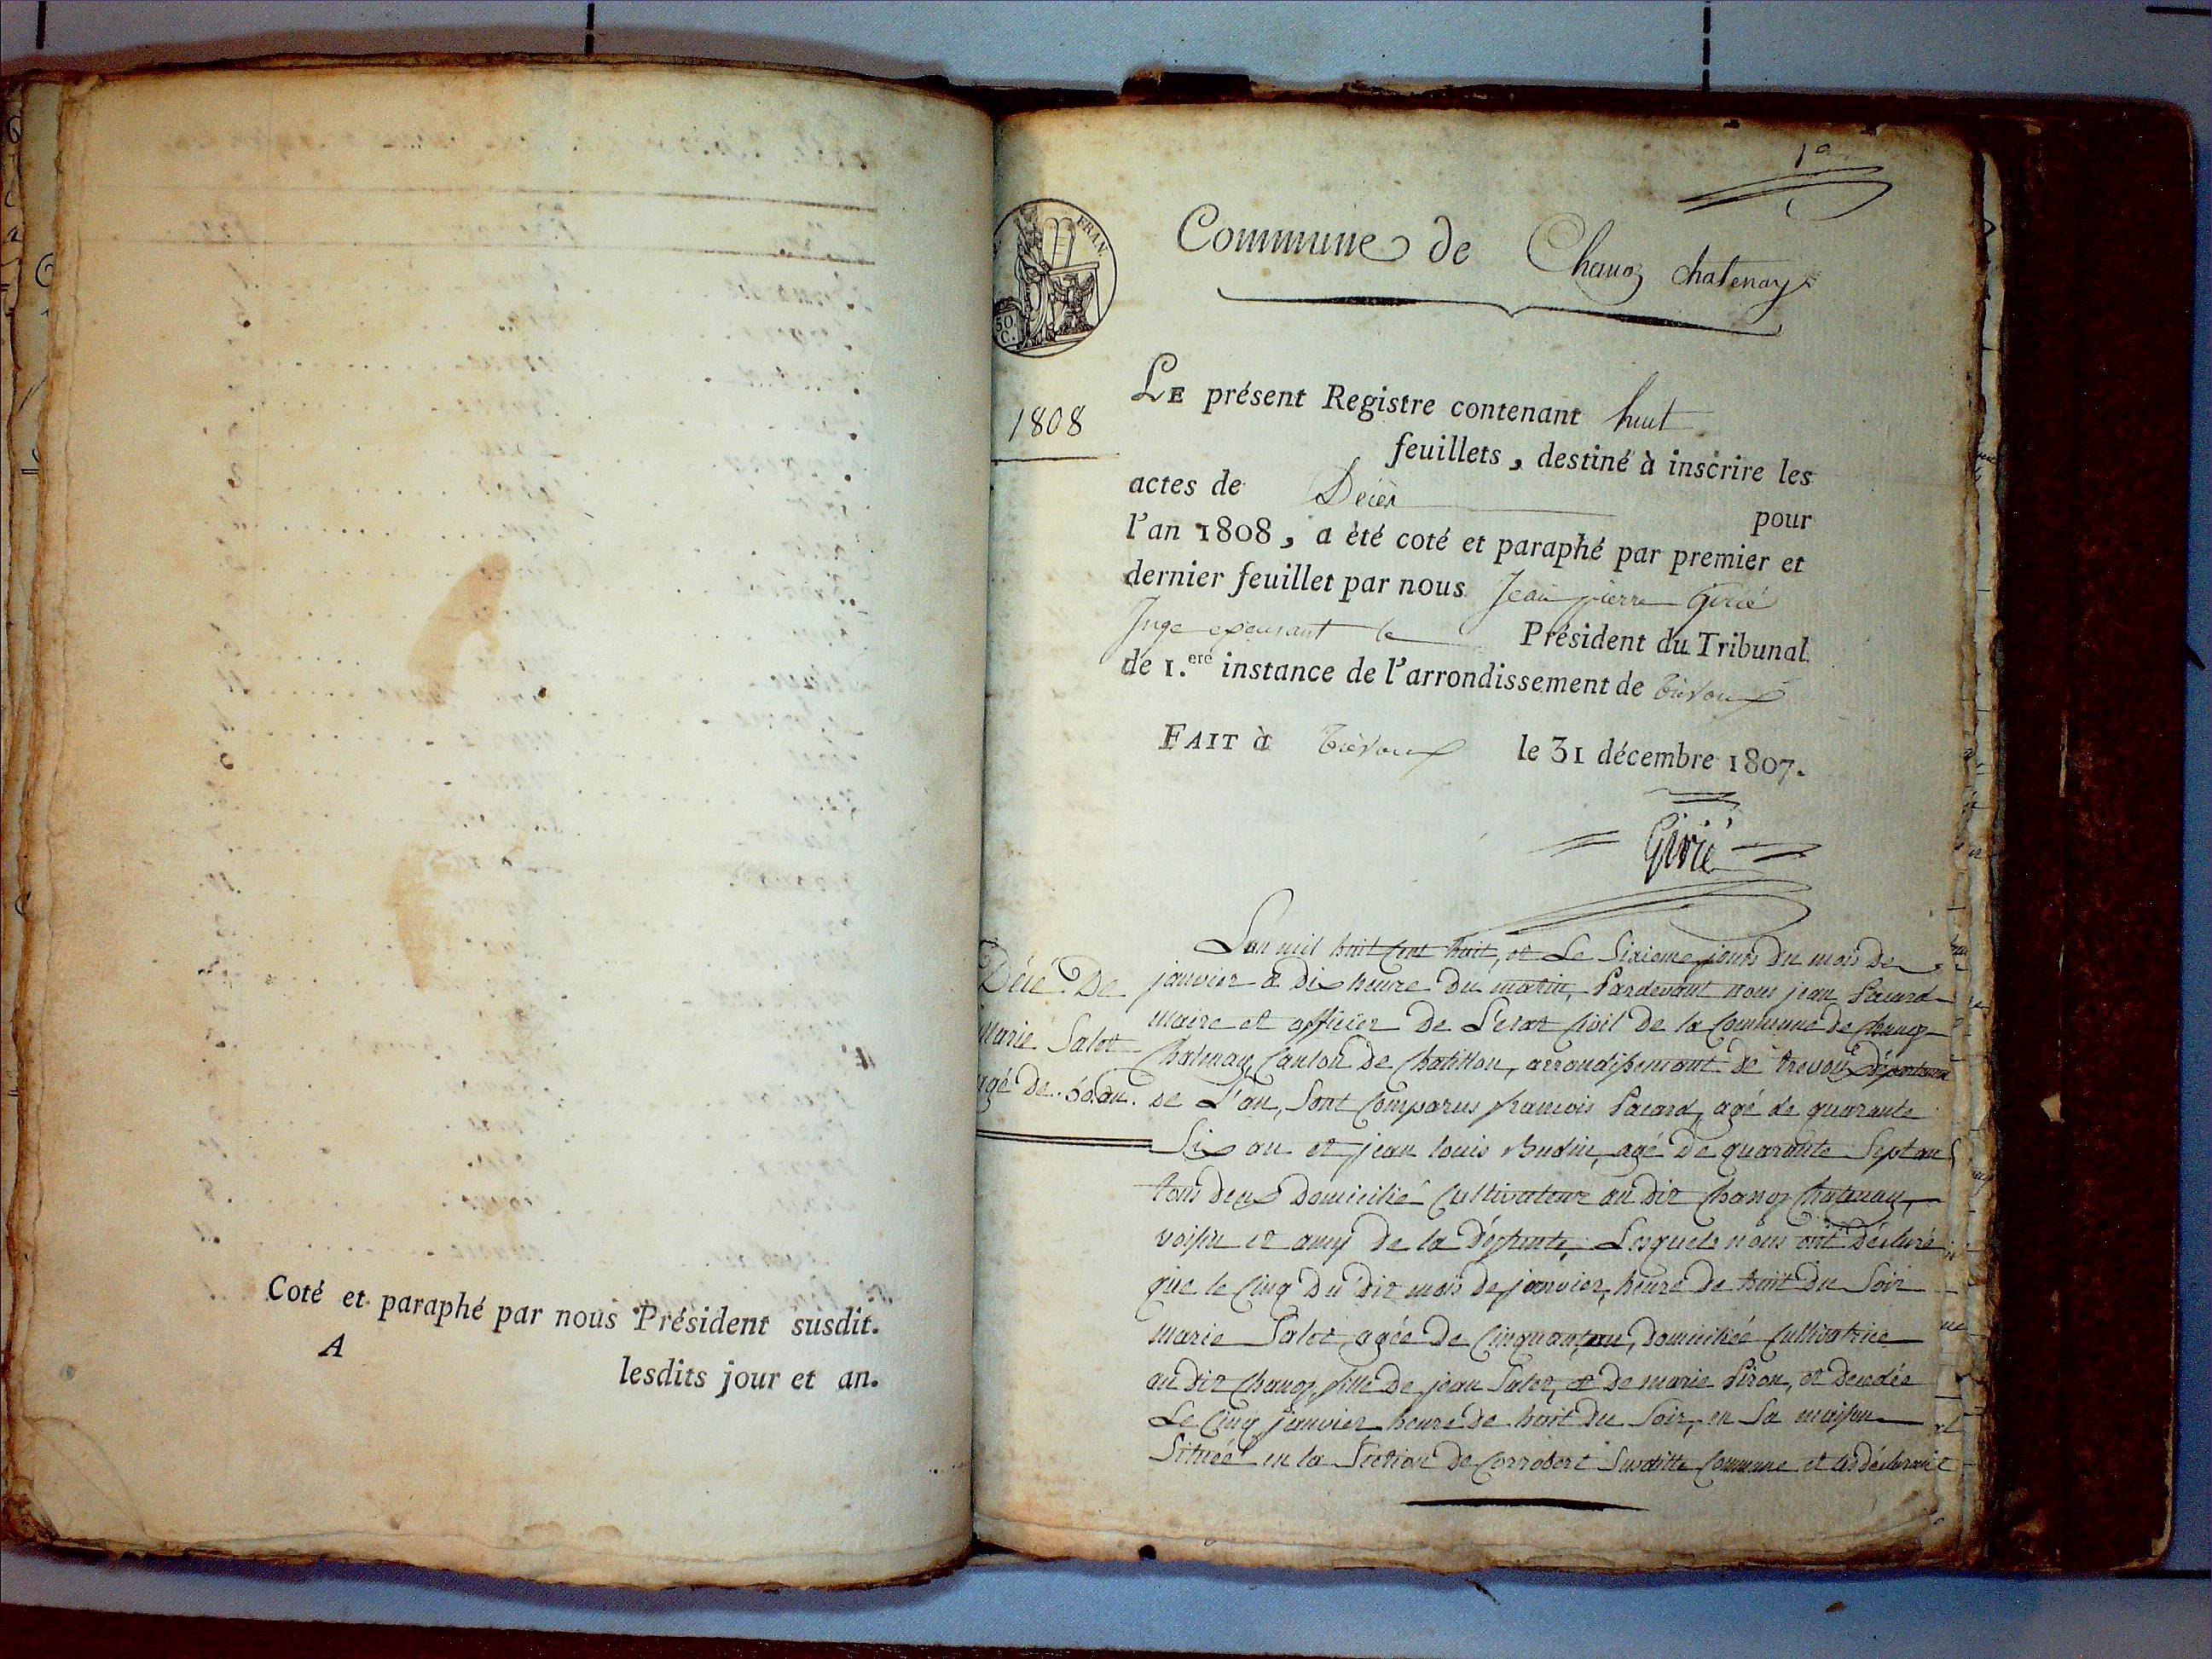 Coté et paraphé par nous Président susdit.
A
lesdits jour et an.
1a
FRAN.
50
C.
Commune de Chanoz chatenay
1808
LE présent Registre contenant huit
feuillets, destiné à inscrire les
actes de Décès pour
l'an 1808, a èté coté et paraphé par premier et
dernier feuillet par nous Jean pierre Girié
Juge exerçant le Président du Tribunal
de 1.ere instance de l'arrondissement de Trévoux
FAIT à Trévoux le 31 décembre 1807.
Girié
Décé De
Marie Salot
agé de 50. an.
Lan mil huit Cent huit, et Le Sixieme jours du mois de
janvier a dix heure du matin, Pardevant nous jean Pacard
maire et officier de L'etat Civil de la Commune de Chanoz
Chatenay, Canton de Chatillon, arrondissement de trevoux Département
de L'ain, Sont Comparus francois Pacard, agé de quarante
Six an et jean louis Budin, agé de quarante Sept an
tous deux domicilié Cultivateur au dit Chanoz Chatenay,
voisin et amy de la défunte, Lesquels nous ont déclaré
que le Cinq du dit mois de janvier, heure de huit du Soir
marie Salot, agée de Cinquante an, domiciliée Cultivatrice
au dit Chanoz, fille de jean Salot, et de marie Piron, et decedée
Le Cinq janvier heure de huit du Soir, en Sa maison
Située en la Section de Corrobert Susditte Commune et les déclarant